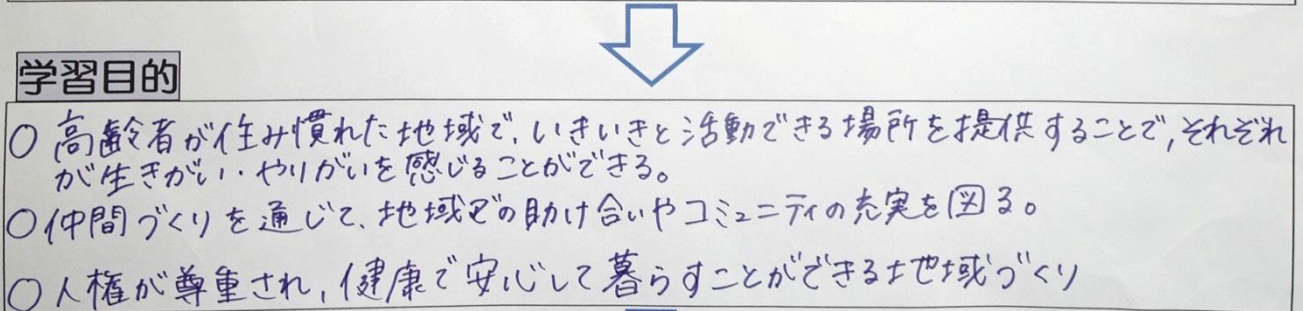 学習目的
○ 高齢者が住み慣れた地域で、いきいきと活動できる場所を提供することで、それぞれ
が生きがい・やりがいを感じることができる。
○ 仲間づくりを通じて、地域での助け合いやコミュニティの充実を図る。
○ 人権が尊重され、健康で安心して暮らすことができる地域づくり